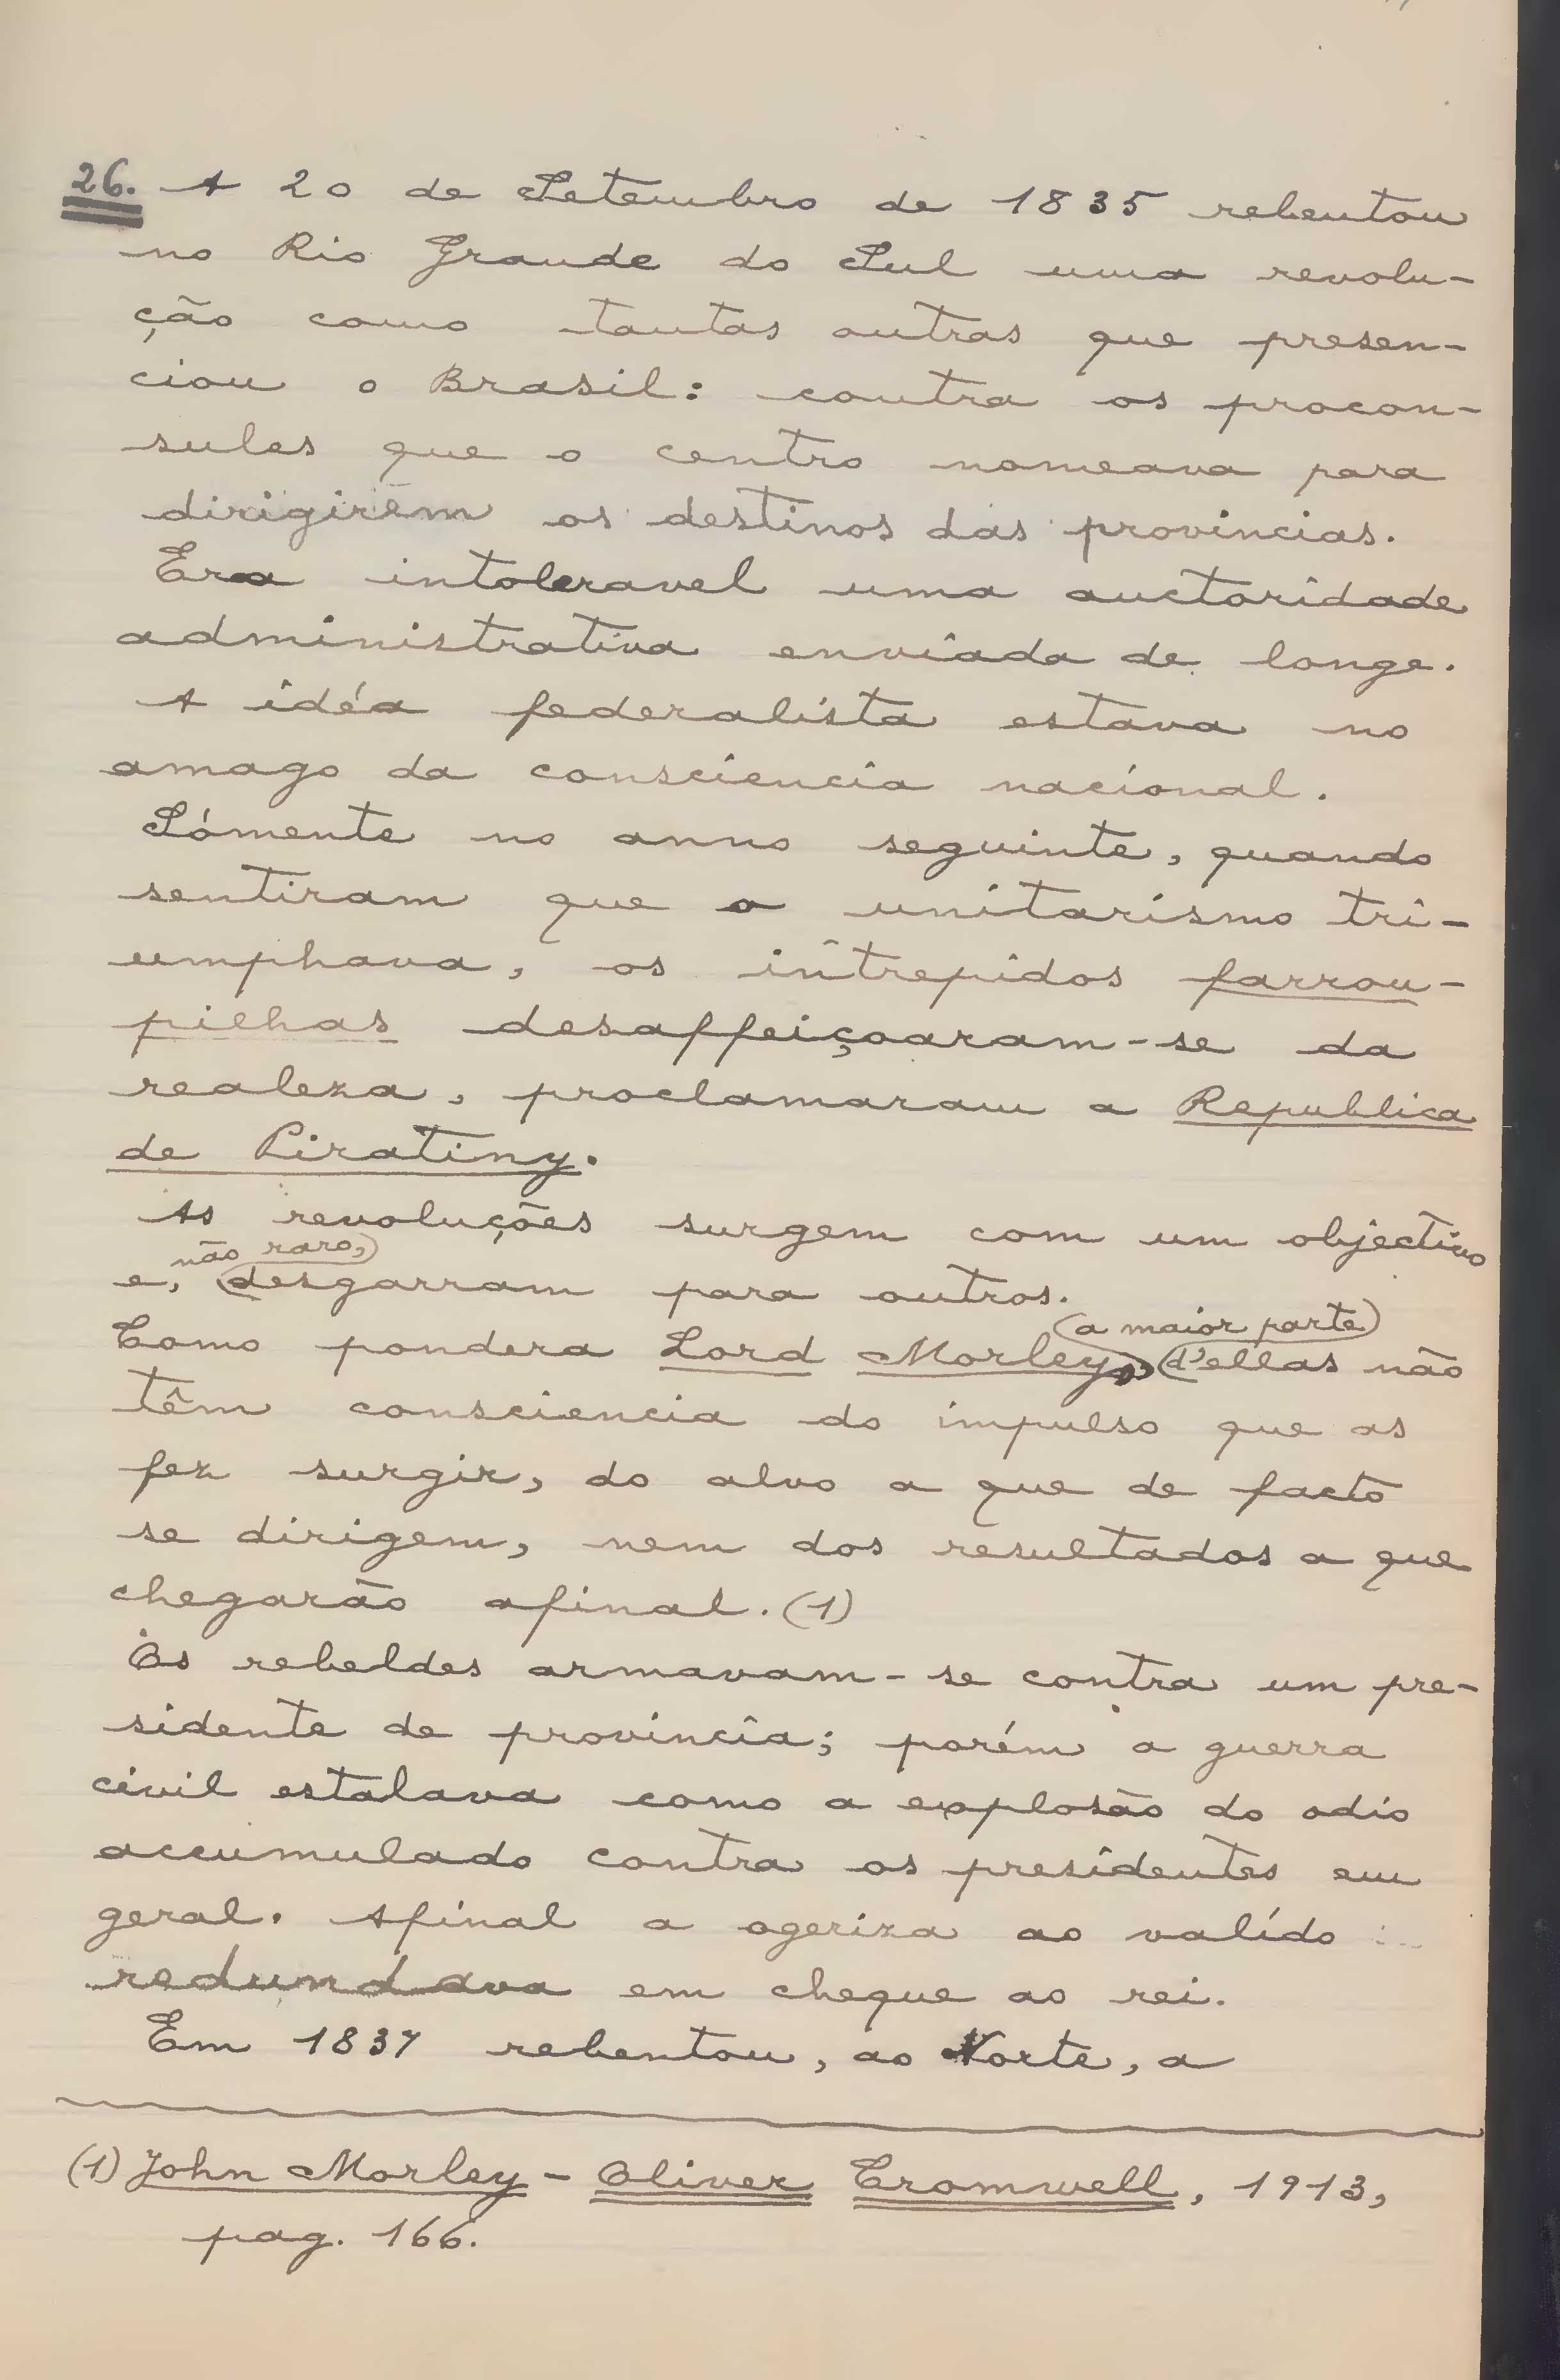 26. A 20 de Setembro de 1835 rebentou
no Rio Grande do Sul uma revolu-
ção como tantas outras que presen-
ciou o Brasil: contra os procon-
sules que o centro nomeava para
dirigirem os destinos das provincias.
Era intoleravel uma auctoridade
administrativa enviada de longe.
A idéa federalista estava no
amago da consciencia nacional.
Sómente no anno seguinte, quando
sentiram que o unitarismo tri-
umphava, os intrepidos farrou-
pilhas desaffeiçoaram-se da
realeza, proclamaram a Republica
de Piratiny.
As revoluções surgem com um objectivo
não raro,
e, desgarram para outros.
(a maior parte)
Como pondera Lord Morley, d'ellas não
têm consciencia do impulso que as
fez surgir, do alvo a que de facto
se dirigem, nem dos resultados a que
chegarão afinal. (1)
Os rebeldes armavam-se contra um pre-
sidente de provincia; porém a guerra
civil estalava como a explosão do odio
accumulado contra os presidentes em
geral. Afinal a ogeriza ao valído
redundava em cheque ao rei.
Em 1837 rebentou, ao Norte, a
(1) John Morley - Oliver Cromwell, 1913,
pag. 166.